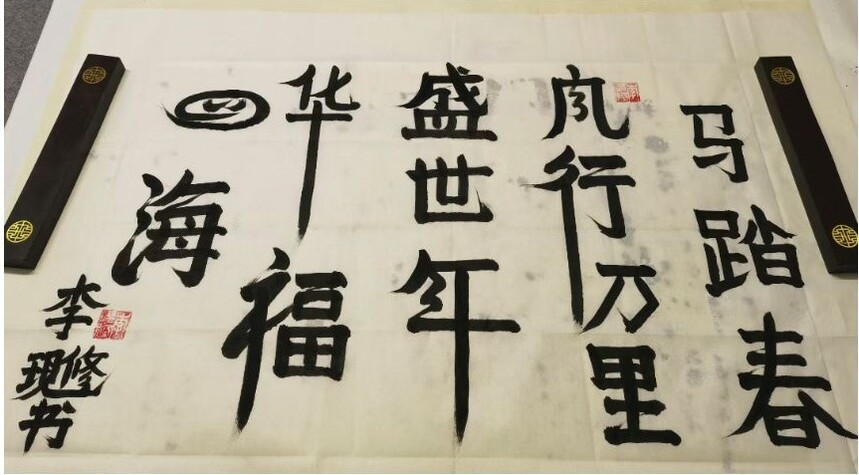 马踏春
风行万里
盛世年
华福
四海
李修现书